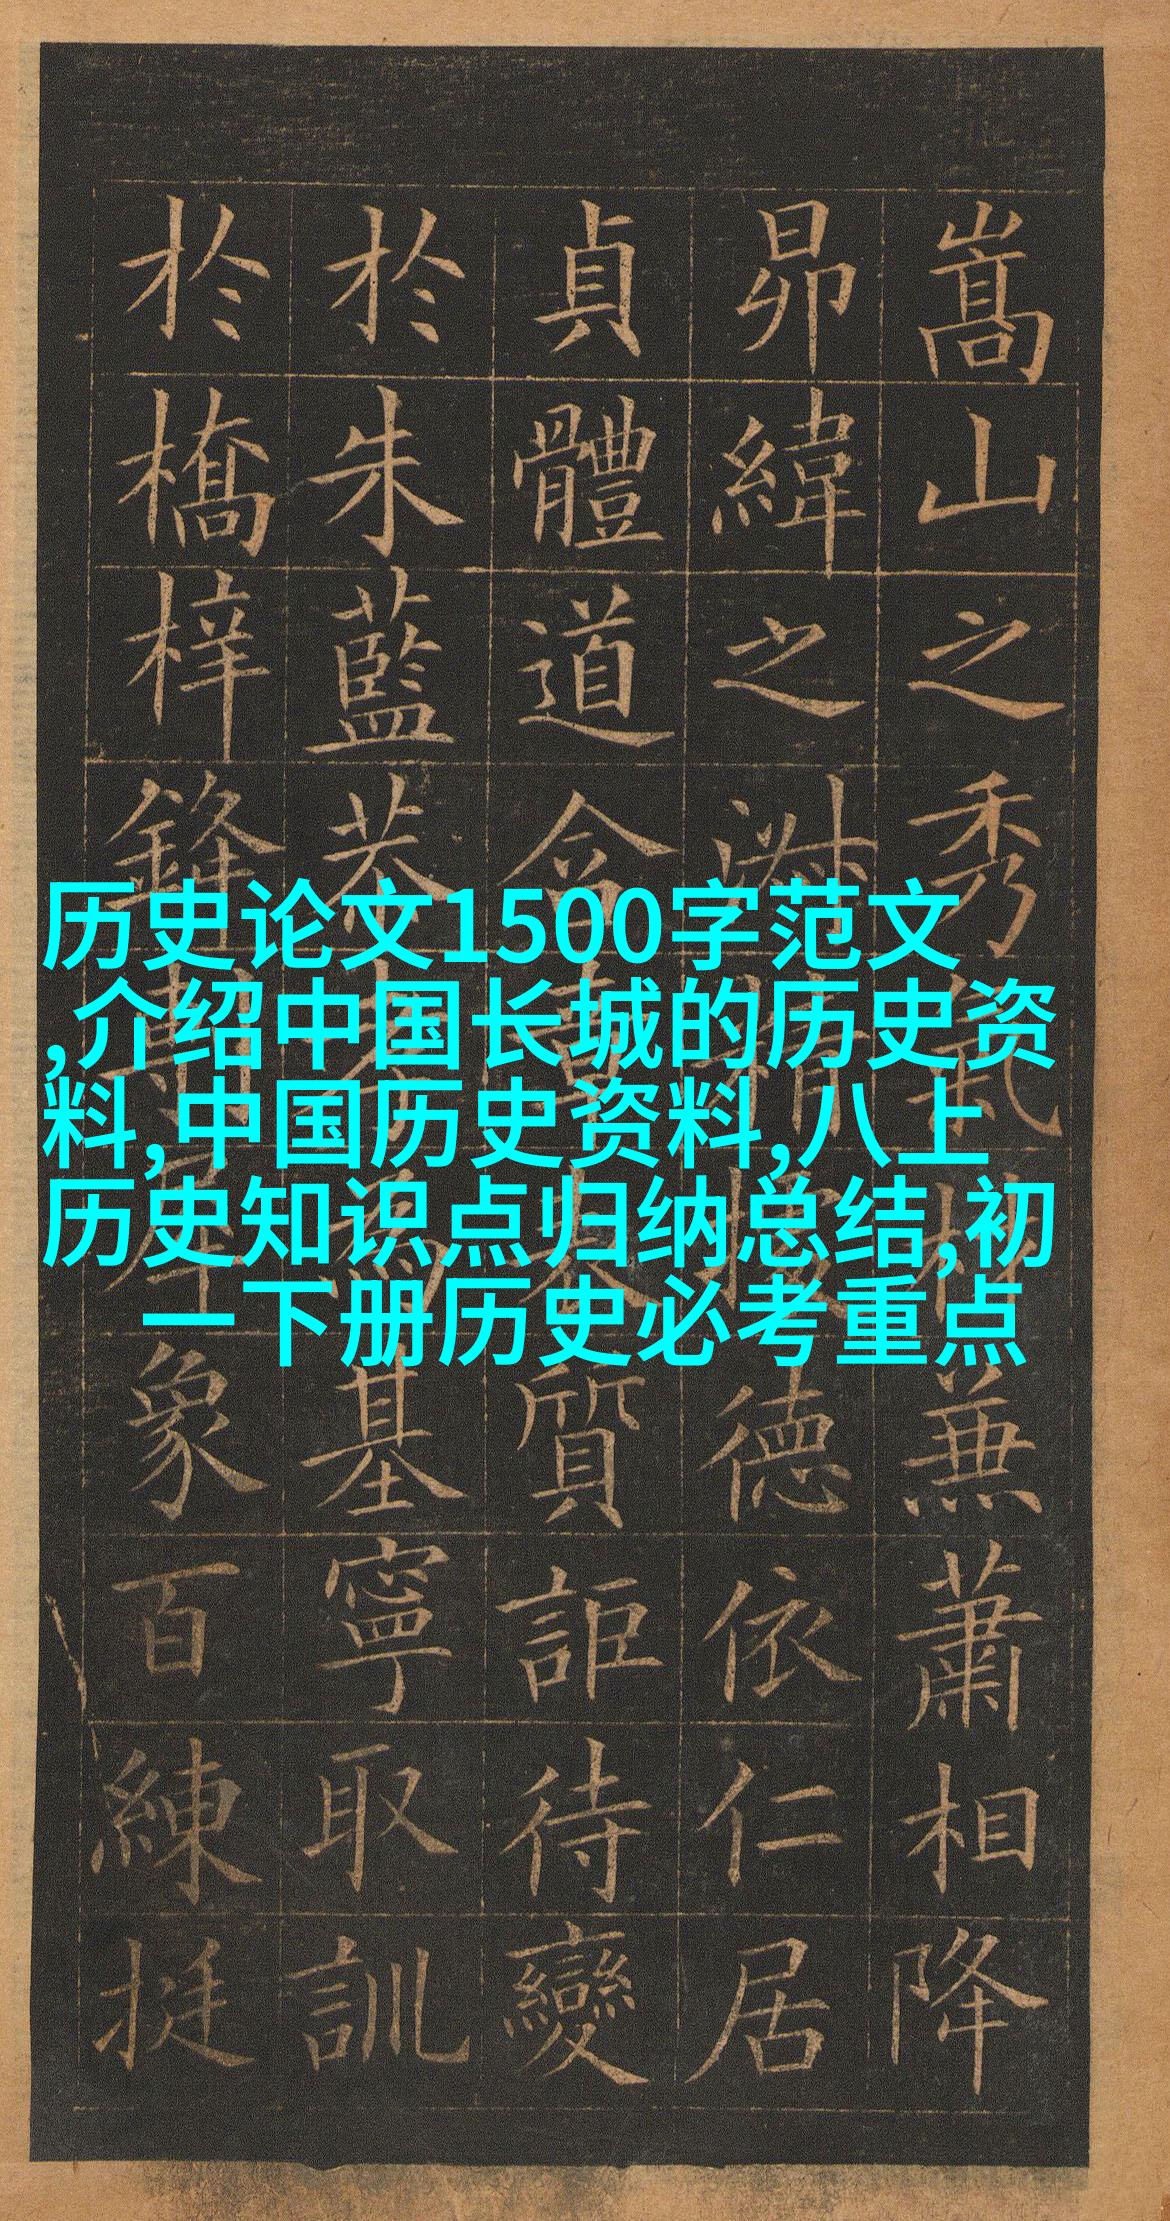 嵩山之秀氣蕪蕭相降
昴緯之淑精挺德依仁居
貞體道含章表質詎待變
於朱藍恭孝為基寧取訓
於橋梓鋒穎犀象百練挺
历史论文1500字范文
,介绍中国长城的历史资
料,中国历史资料,八上
历史知识点归纳总结,初
一下册历史必考重点